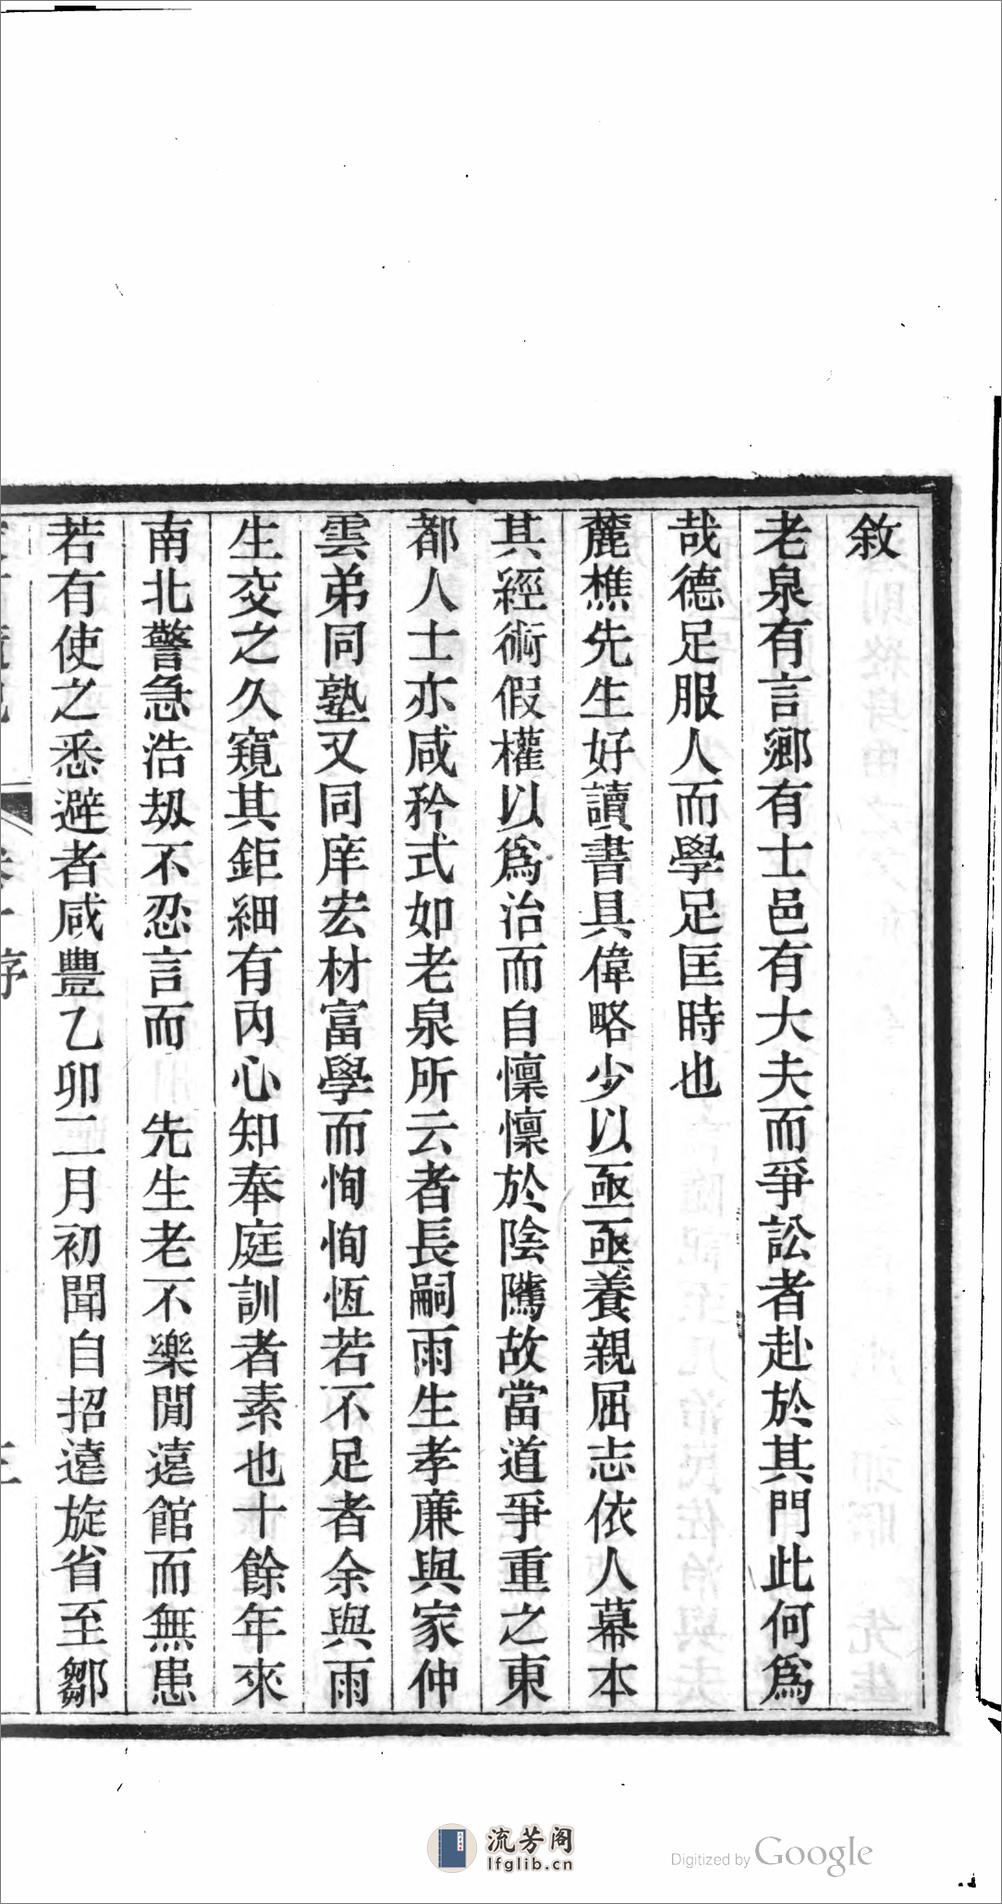 敘
老泉有言鄉有士邑有大夫而爭訟者赴於其門此何爲
哉德足服人而學足匡時也
麓樵先生好讀書具偉略少以亟亟養親屈志依人幕本
其經術假權以爲治而自懍懍於陰隲故當道爭重之東
都人士亦咸矜式如老泉所云者長嗣雨生孝廉與家仲
雲弟同塾又同庠宏材富學而恂恂恆若不足者余與雨
生交之久窺其鉅細有內心知奉庭訓者素也十餘年來
南北警急浩刼不忍言而 先生老不樂閒遠館而無患
若有使之悉避者咸豐乙卯二月初聞自招遠旋省至鄒
序
三
流芳阁
lfglib.cn
Digitized by Google